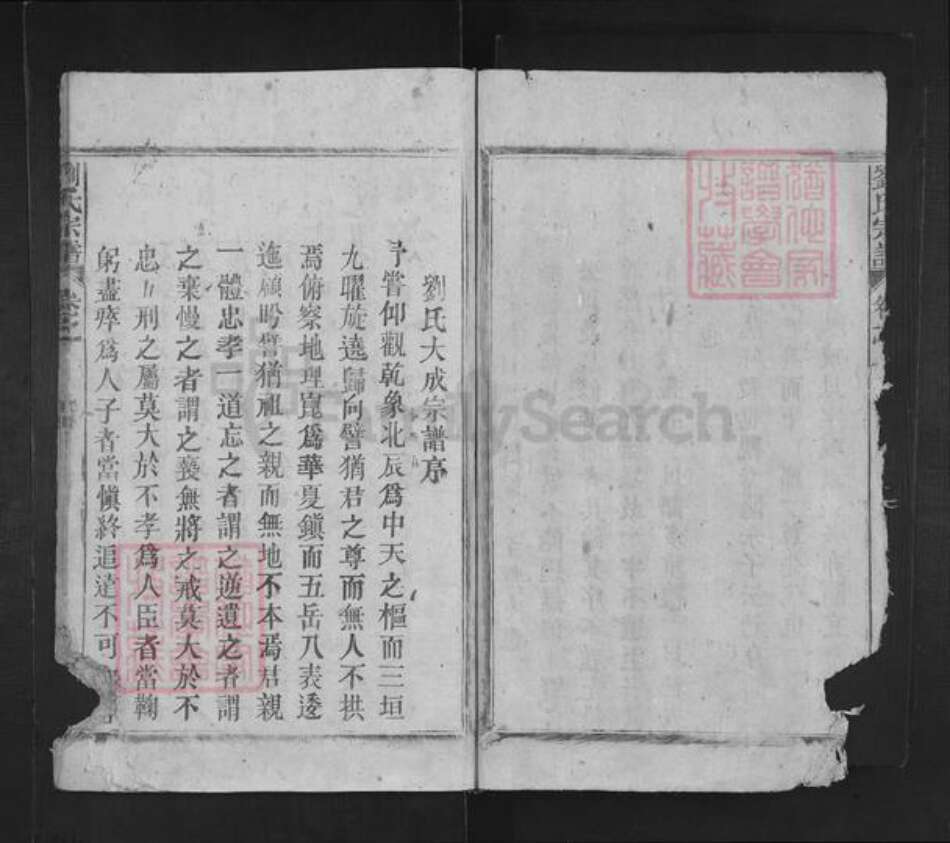 劉氏宗譜
卷之
猶他家譜學會收藏
劉氏大成宗譜序
予嘗仰觀乾象北辰爲中天之樞而三垣
九曜旋遶歸向譬猶君之尊而無人不拱
焉俯察地理嵬爲華夏鎮而五岳八表逶
迤顧盼譬猶祖之親而無地不本焉君親
一體忠孝一道忘之者謂之逆遺之者謂
之棄慢之者謂之褻無將之戒莫大於不
忠五刑之屬莫大於不孝爲人臣者當鞠
躬盡瘁爲人子者當愼終追遠不可
劉氏宗譜
卷之
FamilySearch